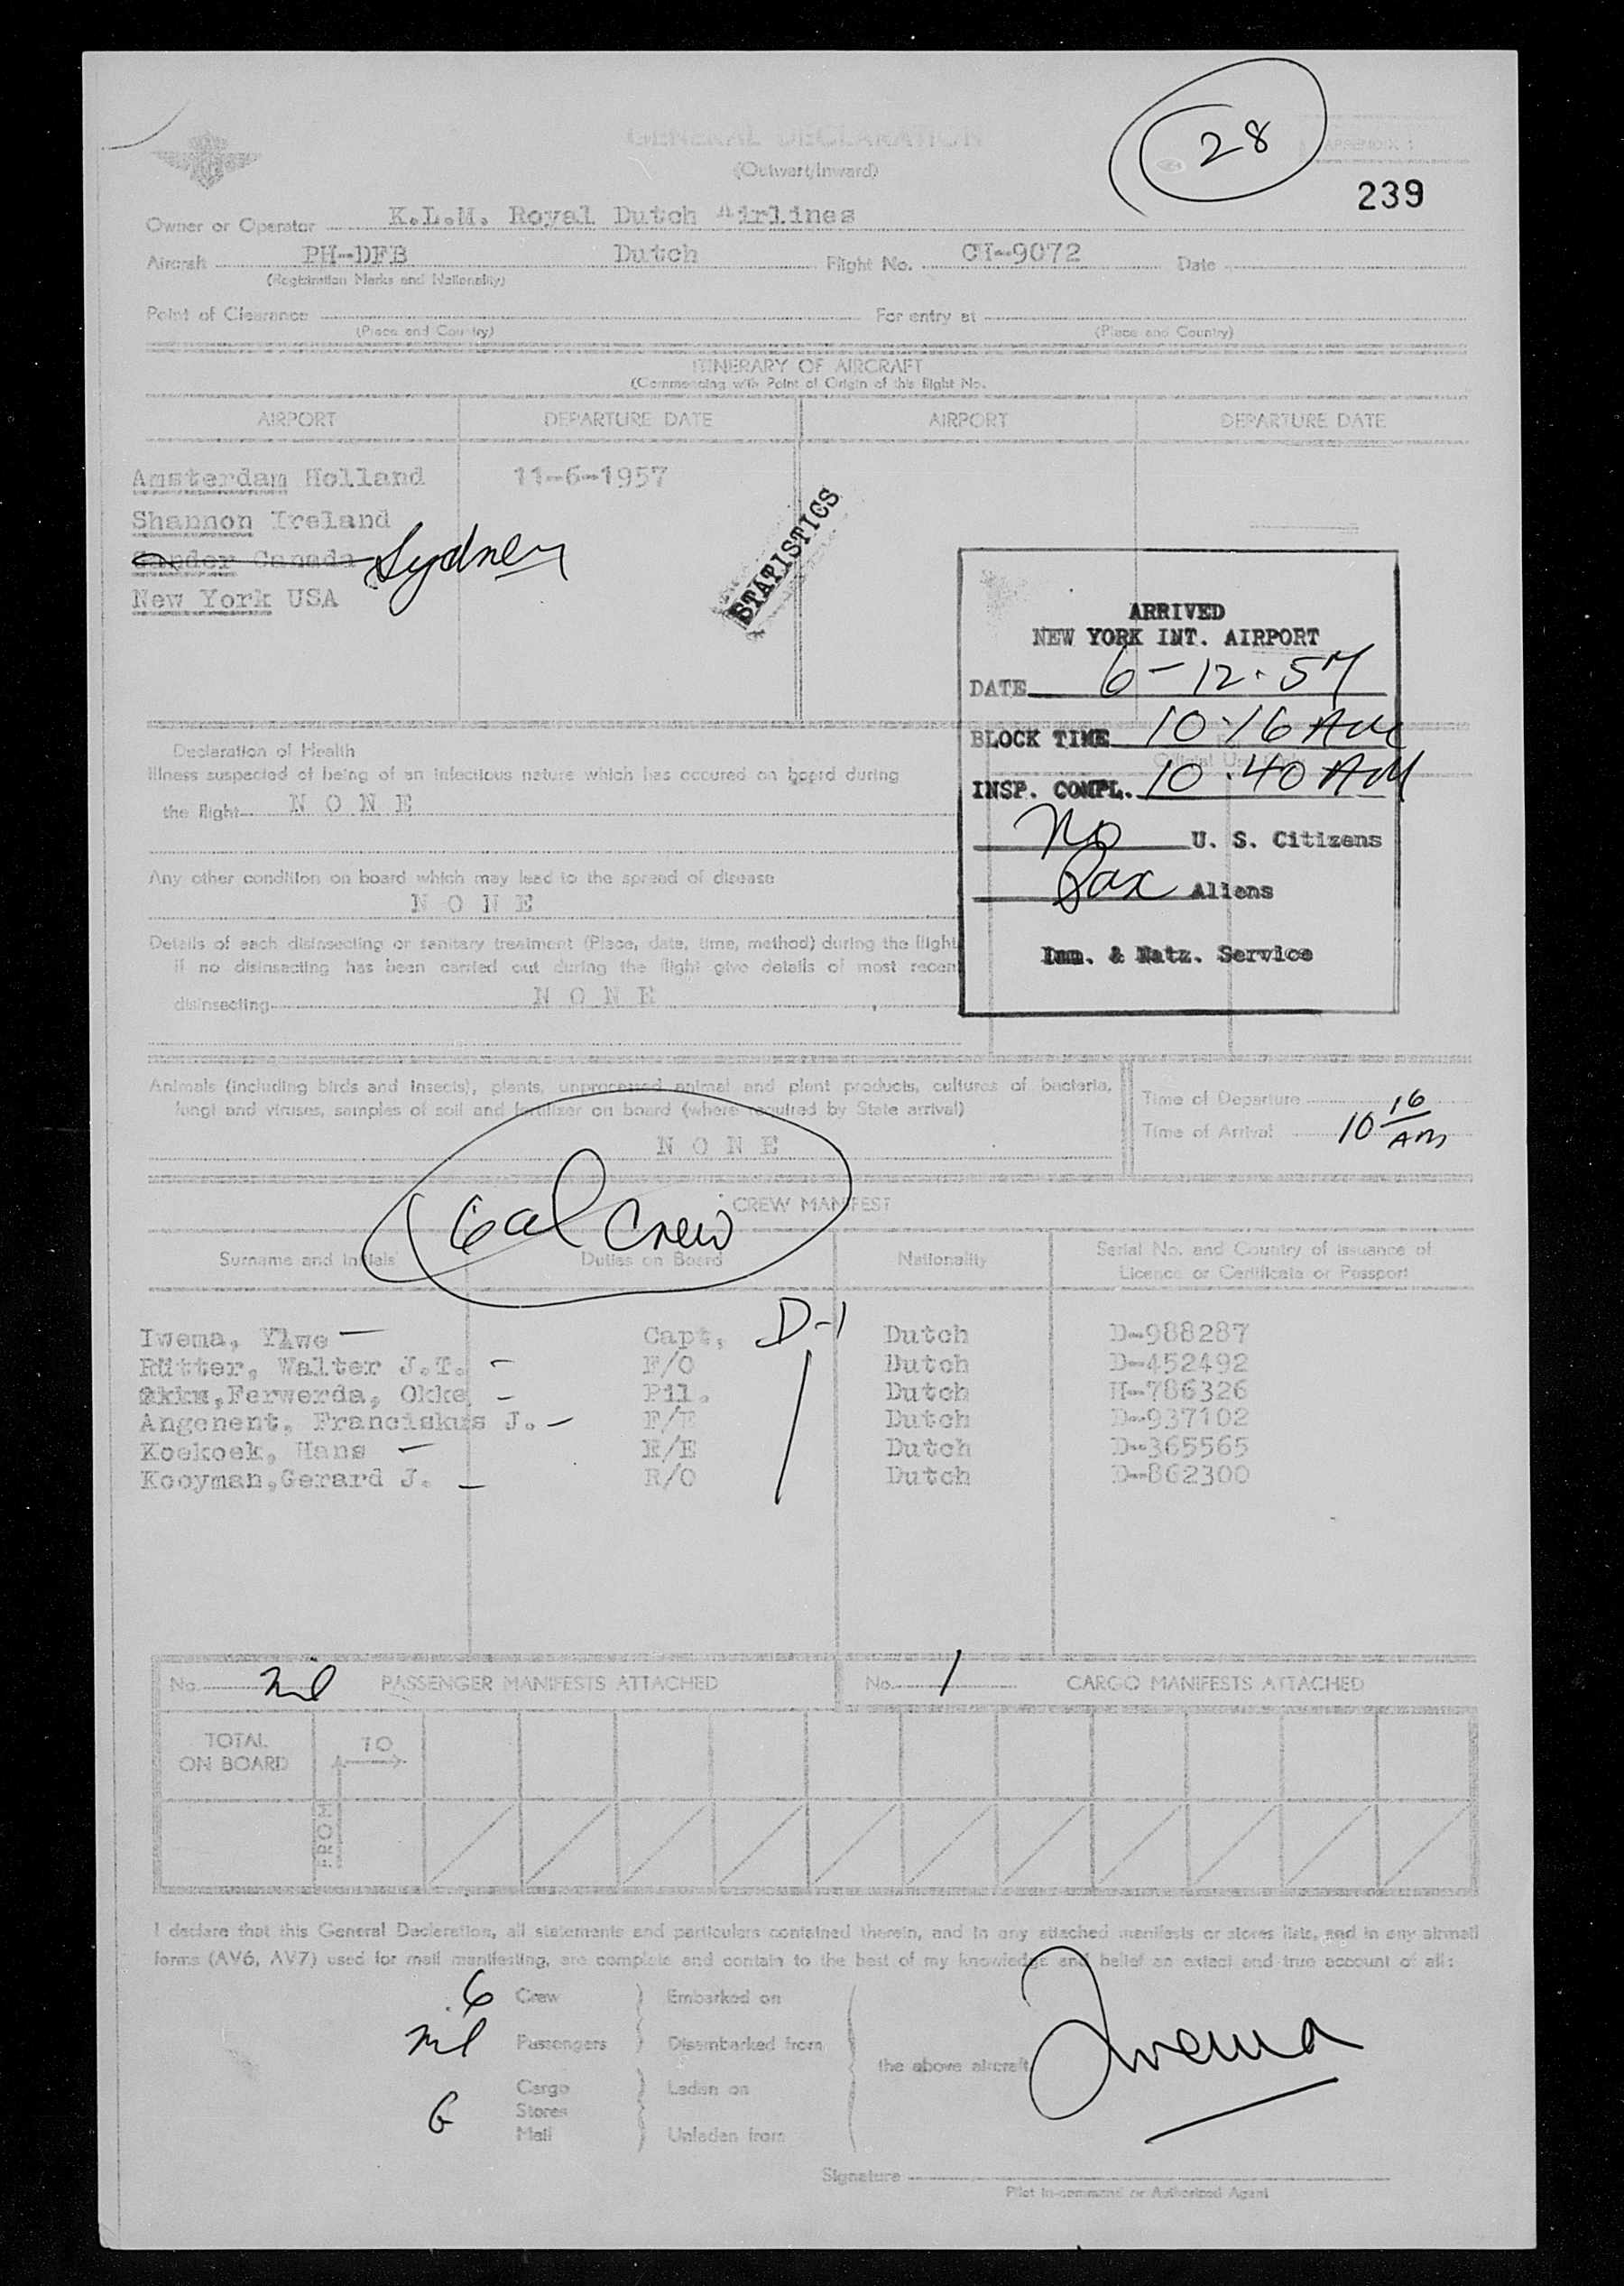 28
GENERAL DECLARATION
APPENDIX 1
(Outwart/Inward)
239
Owner or Operator K.L.M. Royal Dutch Airlines
Aircraft PH-DFB Dutch Flight No. CH-9072 Date
(Registration Marks and Nationality)
Point of Clearance For entry at
(Place and Country) (Place and Country)
ITINERARY OF AIRCRAFT
(Commencing with Point of Origin of this flight No.
AIRPORT DEPARTURE DATE AIRPORT DEPARTURE DATE
Amsterdam Holland 11-6-1957
Shannon Ireland
Gander Canada Sydney
New York USA
STATISTICS
ARRIVED
NEW YORK INT. AIRPORT
DATE 6-12-57
BLOCK TIME 10:16 AM
INSP. COMPL. 10:40 AM
No U. S. Citizens
Pax Aliens
Imm. & Natz. Service
Declaration of Health
Illness suspected of being of an infectious nature which has occured on board during
the flight N O N E
Any other condition on board which may lead to the spread of disease
N O N E
Details of each disinsecting or sanitary treatment (Place, date, time, method) during the flight
if no disinsecting has been carried out during the flight give details of most recen
disinsecting N O N E
Animals (including birds and insects), plants, unprocessed animal and plant products, cultures of bacteria,
fungi and viruses, samples of soil and fertilizer on board (where required by State arrival)
N O N E
Time of Departure
Time of Arrival 10 16 AM
CREW MANIFEST
Crew
Surname and Initials Duties on Board Nationality Serial No. and Country of issuance of
Licence or Certificate or Passport
Iwema, Ylwe Capt, D-1 Dutch D-988287
Rütter, Walter J.T. F/O Dutch D-452492
Ferwerda, Okke Pil. Dutch H-786326
Angenent, Franciskus J. F/E Dutch D-937102
Koekoek, Hans F/E Dutch D-365565
Kooyman,Gerard J. R/O Dutch D-862300
No. nil PASSENGER MANIFESTS ATTACHED No. 1 CARGO MANIFESTS ATTACHED
TOTAL
ON BOARD
TO
FROM
I declare that this General Declaration, all statements and particulars contained therein, and in any attached manifests or stores lists, and in any airmail
forms (AV6, AV7) used for mail manifesting, are complete and contain to the best of my knowledge and belief an extact and true account of all:
6 Crew Embarked on
nil Passengers Disembarked from
the above aircraft
Cargo Laden on
Stores
Mail Unladen from
Iwema
Signature
Pilot in-command or Authorized Agent